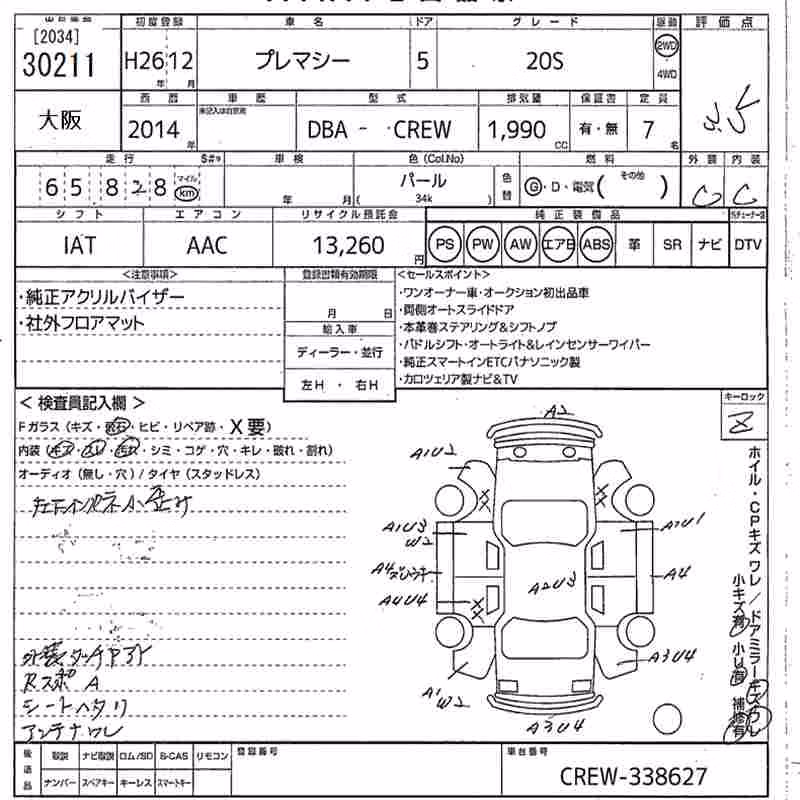 [2034]
30211
初度登録
H26 12
年 月
車名
プレマシー
ドア
5
グレード
20S
駆動
2WD
4WD
評価点
3.5
大阪
西暦
2014
年
車歴
未記入は自家用
型式
DBA - CREW
排気量
1,990
CC
保証書
有・無
定員
7
名
走行
65828
マイル
km
車検
年 月
色(Col.No)
パール
34k
色替
燃料
G・D・電気( その他 )
外装
C
内装
C
シフト
IAT
エアコン
AAC
リサイクル預託金
13,260
円
純正装備品
PS PW AW エアB ABS 革 SR ナビ DTV
<注意事項>
・純正アクリルバイザー
・社外フロアマット
登録書類有効期限
月 日
輸入車
ディーラー・並行
左H ・ 右H
<セールスポイント>
・ワンオーナー車・オークション初出品車
・両側オートスライドドア
・本革巻ステアリング&シフトノブ
・パドルシフト・オートライト&レインセンサーワイパー
・純正スマートインETCパナソニック製
・カロッツェリア製ナビ&TV
キーロック
<検査員記入欄>
Fガラス(キズ・飛石・ヒビ・リペア跡・X要)
内装(・シミ・コゲ・穴・キレ・破れ・割れ)
オーディオ(無し・穴)/タイヤ(スタッドレス)
外装タッチアト
Rスポ A
シートヘタリ
アンテナワレ
A2
A1U2
A1U3
W2
A4
A4U4
A1
W2
A2U3
A1U1
A4
A3U4
A3U4
ホイル・CPキズ ワレ/ドアミラーキズ ワレ
小キズ有 小U有 補修有
後送品
取説 ナビ取説 ロム/SD B-CAS リモコン
ナンバー スペアキー キーレス スマートキー
登録番号
車台番号
CREW-338627